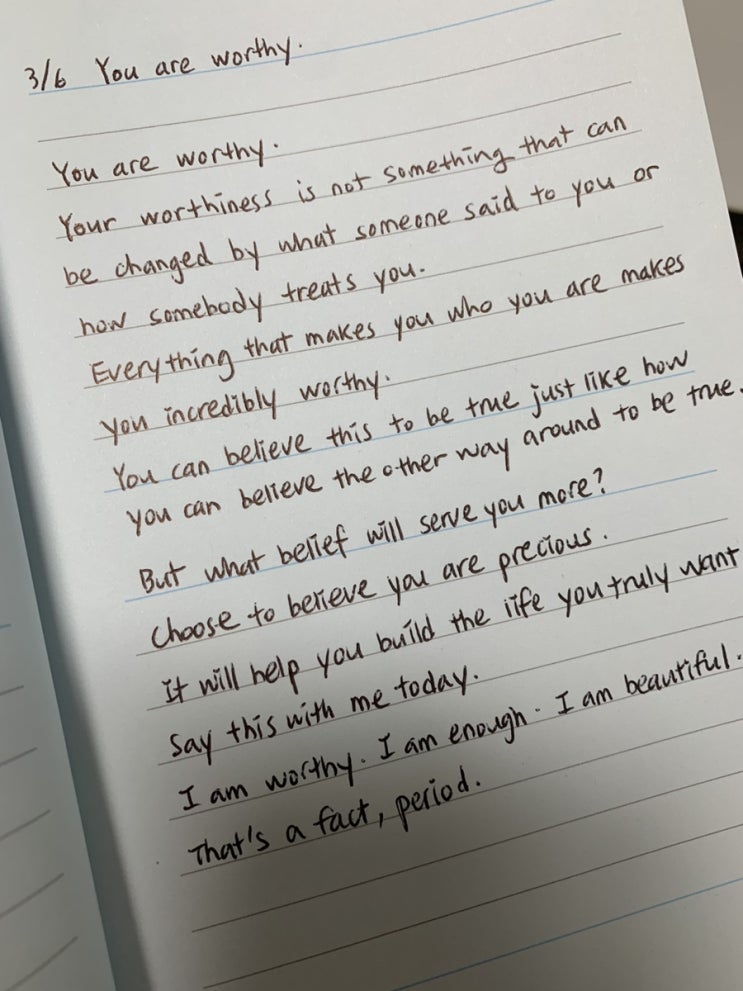 3/6 You are worthy.
You are worthy.
Your worthiness is not something that can
be changed by what someone said to you or
how somebody treats you.
Everything that makes you who you are makes
you incredibly worthy.
You can believe this to be true just like how
you can believe the other way around to be true.
But what belief will serve you more?
Choose to believe you are precious.
It will help you build the life you truly want
Say this with me today.
I am worthy. I am enough. I am beautiful.
That's a fact, period.